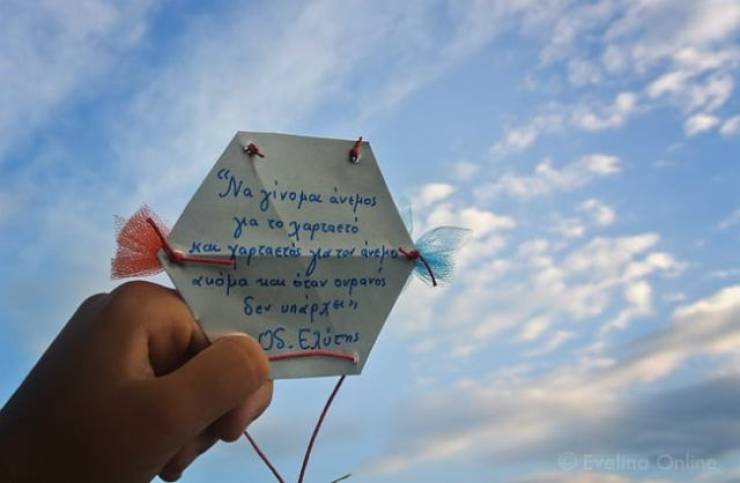 “Να γίνομαι άνεμος
για το χαρταετό
και χαρταετός για τον άνεμο
ακόμα και όταν ουρανός
δεν υπάρχει„
Οδ. Ελύτης
© Evelina Online